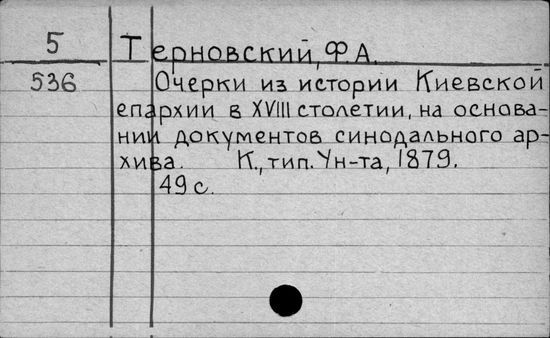 5
536
Терновский, Ф.А.
Очерки из истории Киевской
епархии в XVIII столетии, на основа-
нии документов синодального ар-
хива. К., тип. Ун-та, 1879.
49 с.